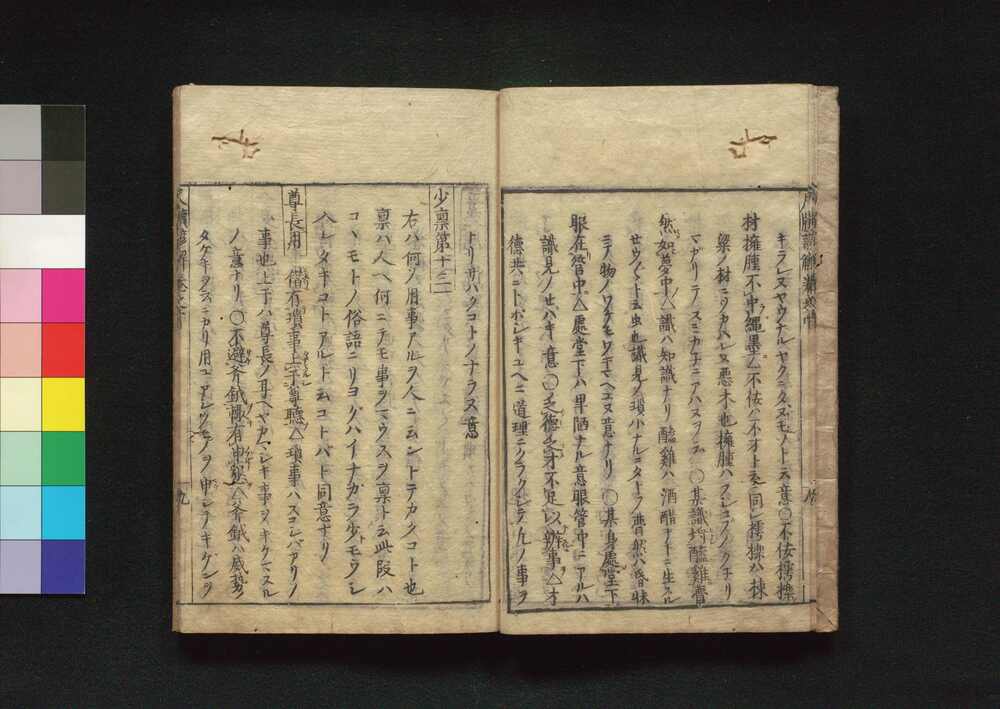 キラレヌヤウナルヤクニタヽヌモノト云意○不佞樗櫟
材擁腫不中縄墨△不佞ハ不才ト云ニ同シ樗櫟ハ棟
梁ノ材ニタカハレヌ悪木也擁腫ハフシコブノクチリ
マガリテスミカネニアハヌヲ云○某識均醯雞瞢
然如夢中△識ハ知識ナリ醯雞ハ酒醋ナトニ生スル
セウ〳〵ト云虫也識見ノ瑣小ナルニタトフ瞢然ハ昏昧
ニテ物ノワケモワキマヘエヌ意ナリ○某身處堂下
眼在管中△處堂下ハ卑陋ナル意眼管中ニアルハ
識見ノせハキ意○乏德乏才不足以辨事△才
德共ニトボシキユヘニ道理ニクラクシテ凡ノ事ヲ
トリサバクコトノナラヌ意
少稟第十三
右ハ何ソ用事アルヲ人ニ云ントテカクコト也
稟ハ人ヘ何ニテモ事ヲマウスヲ稟ト云此段ハ
コヽモトノ俗語ニリヨグハイナガラ少モウシ
入レタキコトアルト云コトバト同意ナリ
尊長用 偕有瑣事上干尊聽△瑣事ハスコシバカリノ
事也上干ハ尊長ノ耳ヘヤカマシキ事ヲキケマスル
ノ意ナリ○不避斧鉞輙有申懇△斧鉞ハ威勢ノ
タケキヲ云ニカリ用ユアシクセアヲ申シテキゲンヲ
九